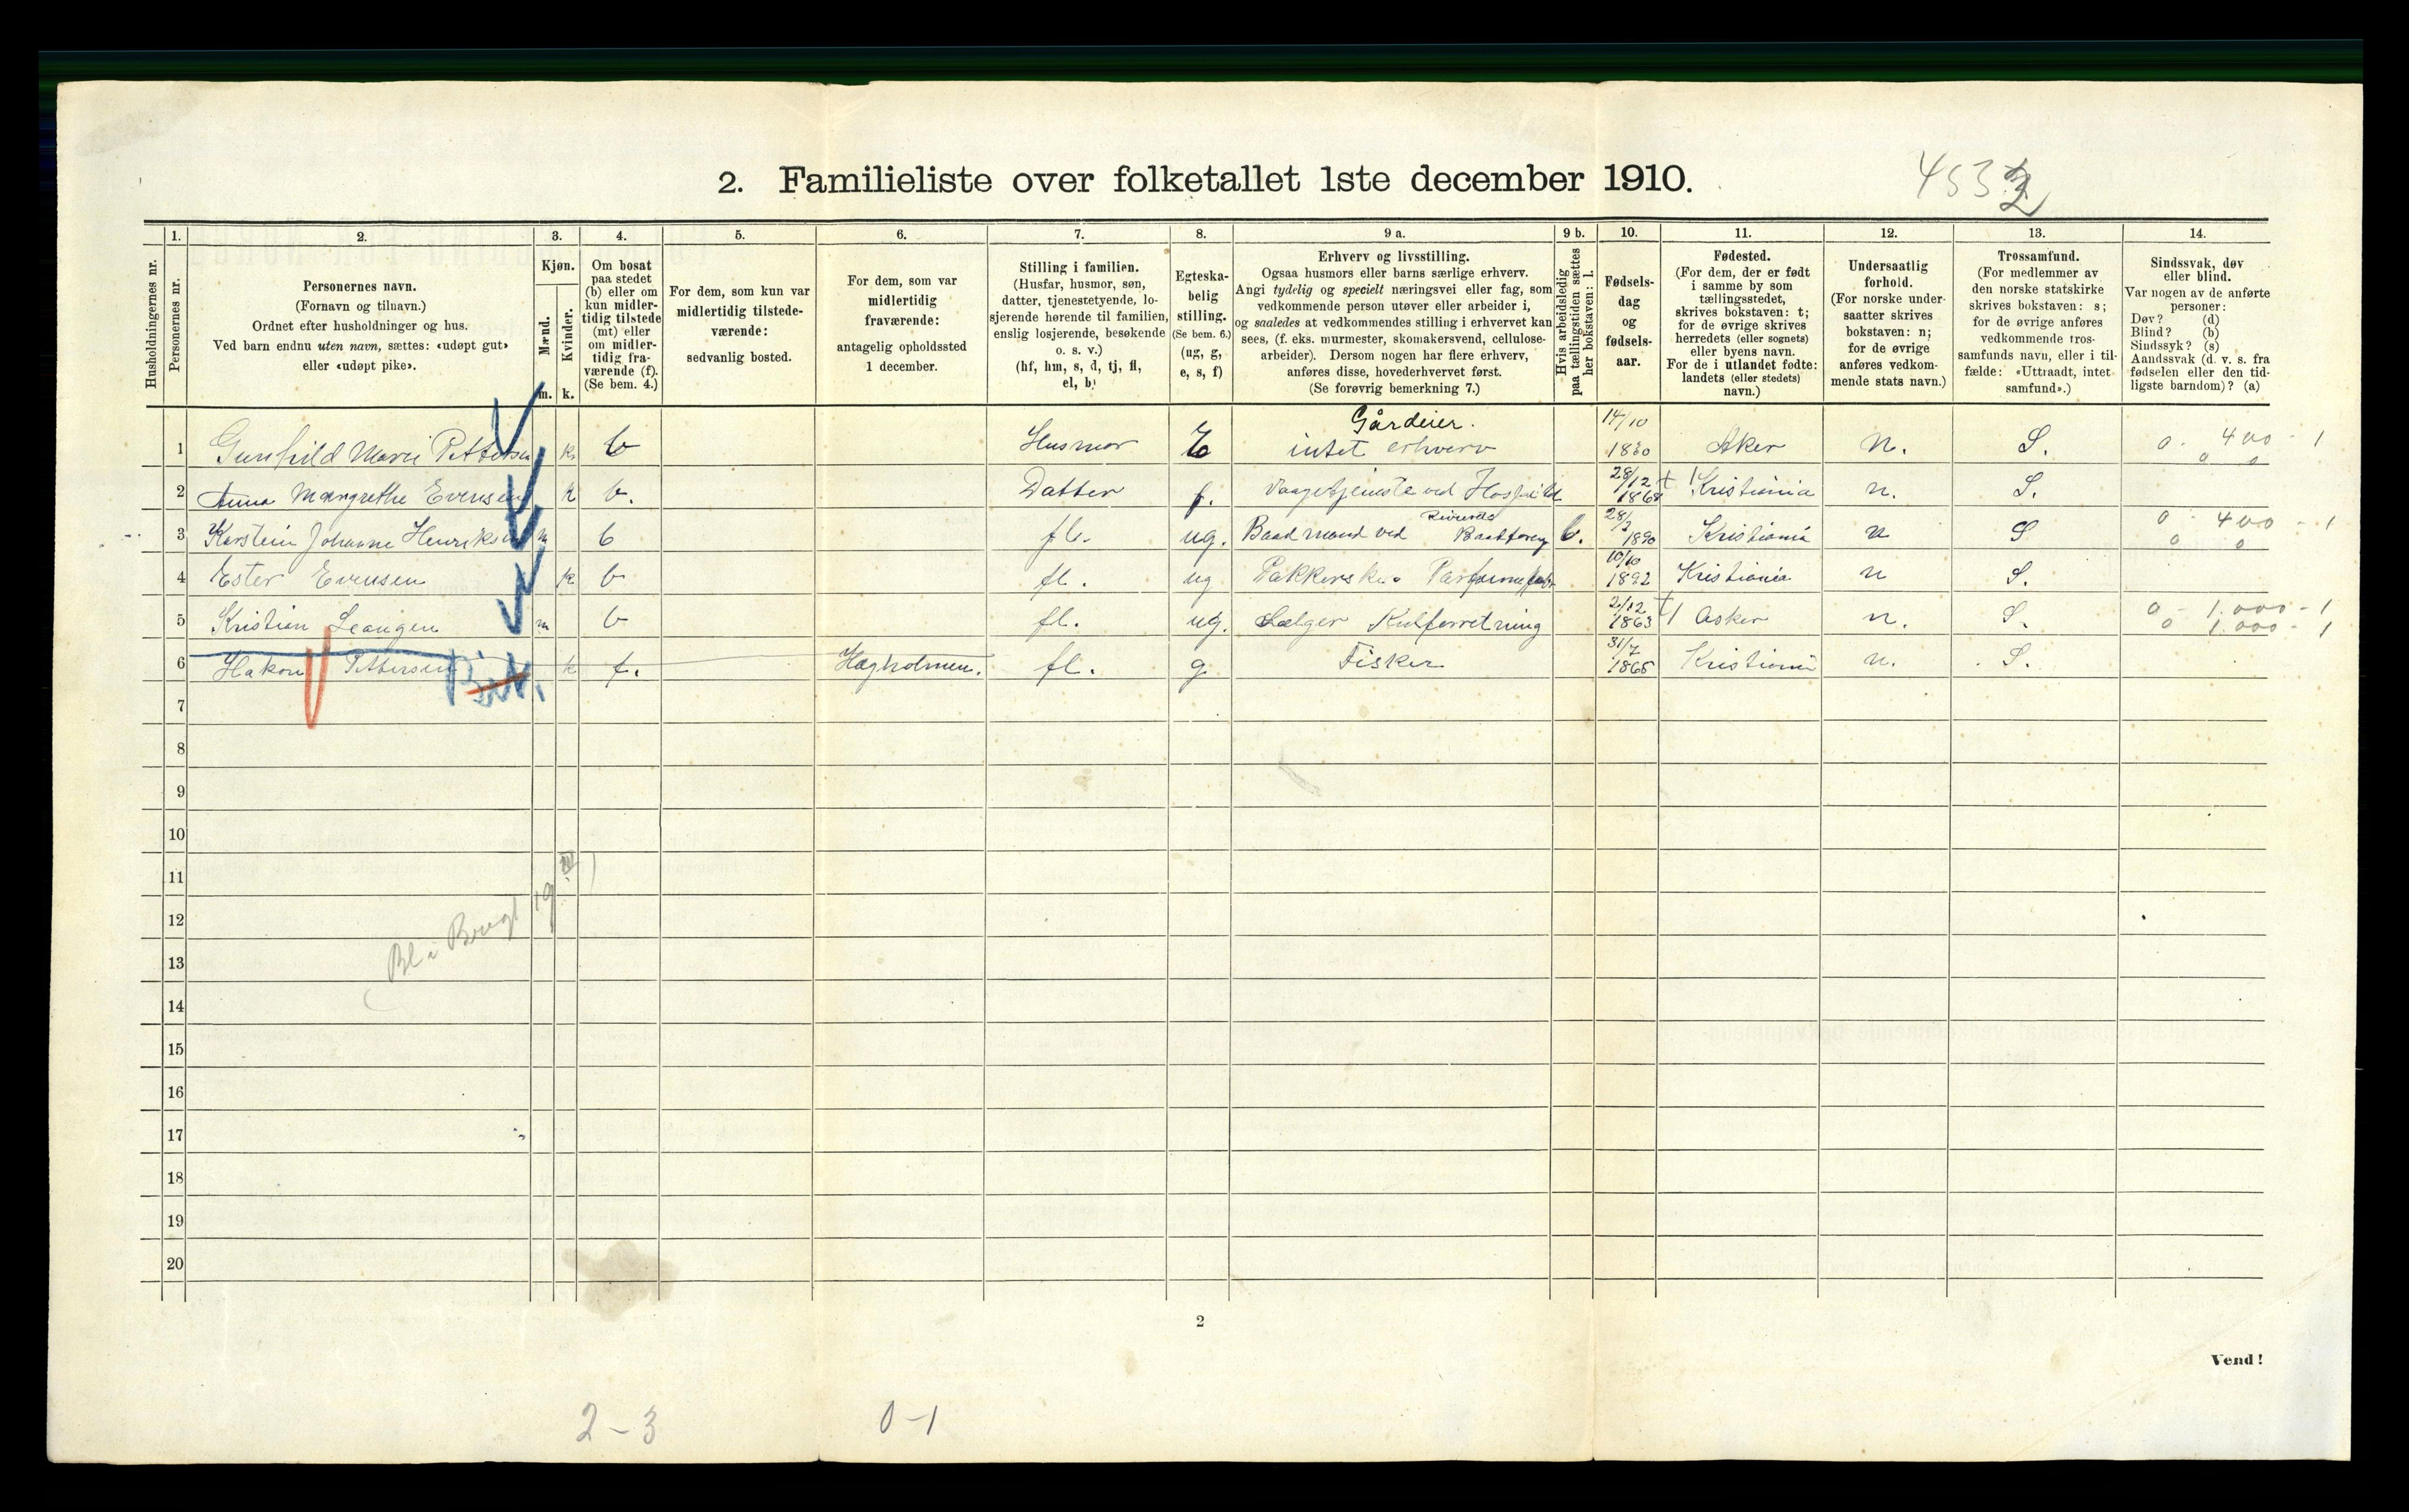 2. Familieliste over folketallet 1ste december 1910.
4532
Husholdningernes nr.
1.
Personernes nr.
2.
Personernes navn.
(Fornavn og tilnavn.)
Ordnet efter husholdninger og hus.
Ved barn endnu uten navn, sættes: «udøpt gut»
eller «udøpt pike».
3.
Kjøn.
Mænd.
Kvinder.
m. k.
4.
Om bosat
paa stedet
(b) eller om
kun midler-
tidig tilstede
(mt) eller
om midler-
tidig fra-
værende (f).
(Se bem. 4.)
5.
For dem, som kun var
midlertidig tilstede-
værende:
sedvanlig bosted.
6.
For dem, som var
midlertidig
fraværende:
antagelig opholdssted
1 december.
7.
Stilling i familien.
(Husfar, husmor, søn,
datter, tjenestetyende, lo-
sjerende hørende til familien,
enslig losjerende, besøkende
o. s. v.)
(hf, hm, s, d, tj, fl,
el, b)
8.
Egteska-
belig
stilling.
(Se bem. 6.)
(ug, g,
e, s, f)
9 a.
Erhverv og livsstilling.
Ogsaa husmors eller barns særlige erhverv.
Angi tydelig og specielt næringsvei eller fag, som
vedkommende person utøver eller arbeider i,
og saaledes at vedkommendes stilling i erhvervet kan
sees, (f. eks. murmester, skomakersvend, cellulose-
arbeider). Dersom nogen har flere erhverv,
anføres disse, hovederhvervet først.
(Se forøvrig bemerkning 7.)
9 b.
Hvis arbeidsledig
paa tællingstiden sættes
her bokstaven: l.
10.
Fødsels-
dag
og
fødsels-
aar.
11.
Fødested.
(For dem, der er født
i samme by som
tællingsstedet,
skrives bokstaven: t;
for de øvrige skrives
herredets (eller sognets)
eller byens navn.
For de i utlandet fødte:
landets (eller stedets)
navn.)
12.
Undersaatlig
forhold.
(For norske under-
saatter skrives
bokstaven: n;
for de øvrige
anføres vedkom-
mende stats navn.)
13.
Trossamfund.
(For medlemmer av
den norske statskirke
skrives bokstaven: s;
for de øvrige anføres
vedkommende tros-
samfunds navn, eller i til-
fælde: «Uttraadt, intet
samfund».)
14.
Sindssvak, døv
eller blind.
Var nogen av de anførte
personer:
Døv? (d)
Blind? (b)
Sindssyk? (s)
Aandssvak (d. v. s. fra
fødselen eller den tid-
ligste barndom)? (a)
Gårdeier.
1 Gunhild Marie Pettersen k b Husmor E intet erhverv 14/10 1830 Aker n. S. 0 - 400 - 1
0 0
2 Anna Margrethe Evensen k b. Datter f. Vaagetjeneste ved Hospital 28/12 1868 Kristiania n. S.
3 Karstein Johanne Henriksen m b fl. ug. Baadmand ved Baatforeng 28/ 1890 Kristiania n S 0 - 400 - 1
0 0
4 Ester Evensen k b fl. ug Pakkerske Parfumefabr. 10/10 1892 Kristiania n S.
5 Kristian Leangen m b fl. ug. Sælger Kulforretning 2/12 1863 Asker n. S. 0 - 1.000 - 1
0 1.000 - 1
6 Hakon Pettersen k f. Hægholmen. fl. g Fisker 31/7 1865 Kristiania n. S.
7
8
9
10
11
12
13
14
15
16
17
18
19
20
2
Vend!
2 - 3
0 - 1